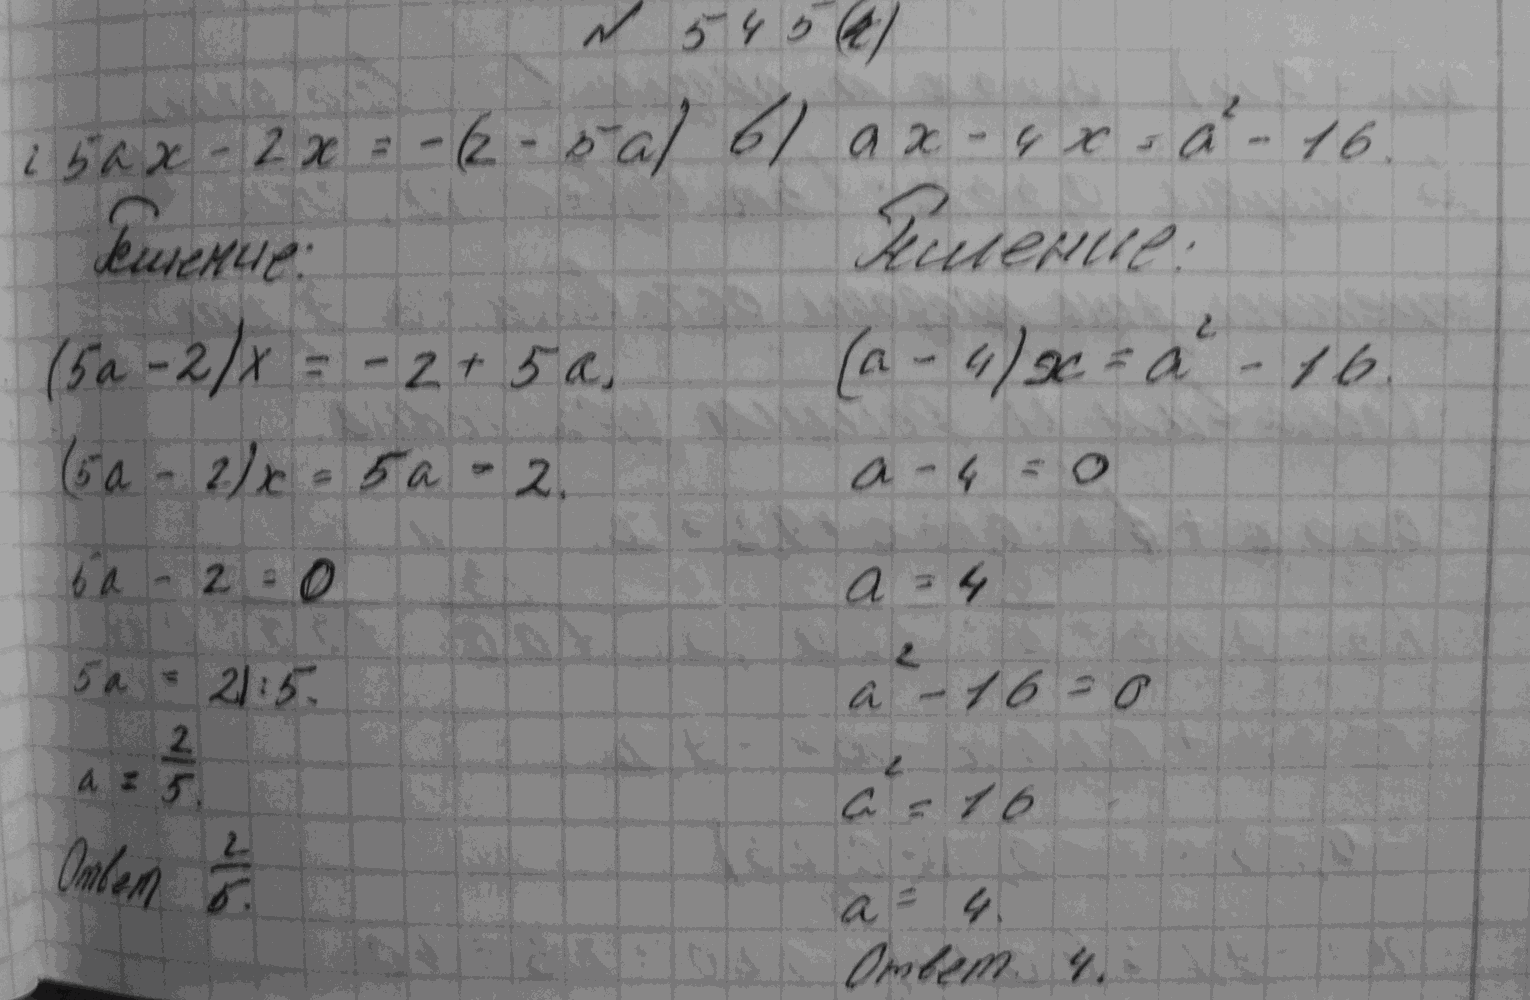 № 545(
5ax - 2x = -(2 - 5a)
Решение:
(5a - 2)x = -2 + 5a.
(5a - 2)x = 5a - 2.
5a - 2 = 0
5a = 2|:5.
a = 2/5.
Ответ 2/5.
б) ax - 4x = a² - 16.
Решение:
(a - 4)x = a² - 16.
a - 4 = 0
a = 4
a² - 16 = 0
a² = 16
a = 4.
Ответ 4.